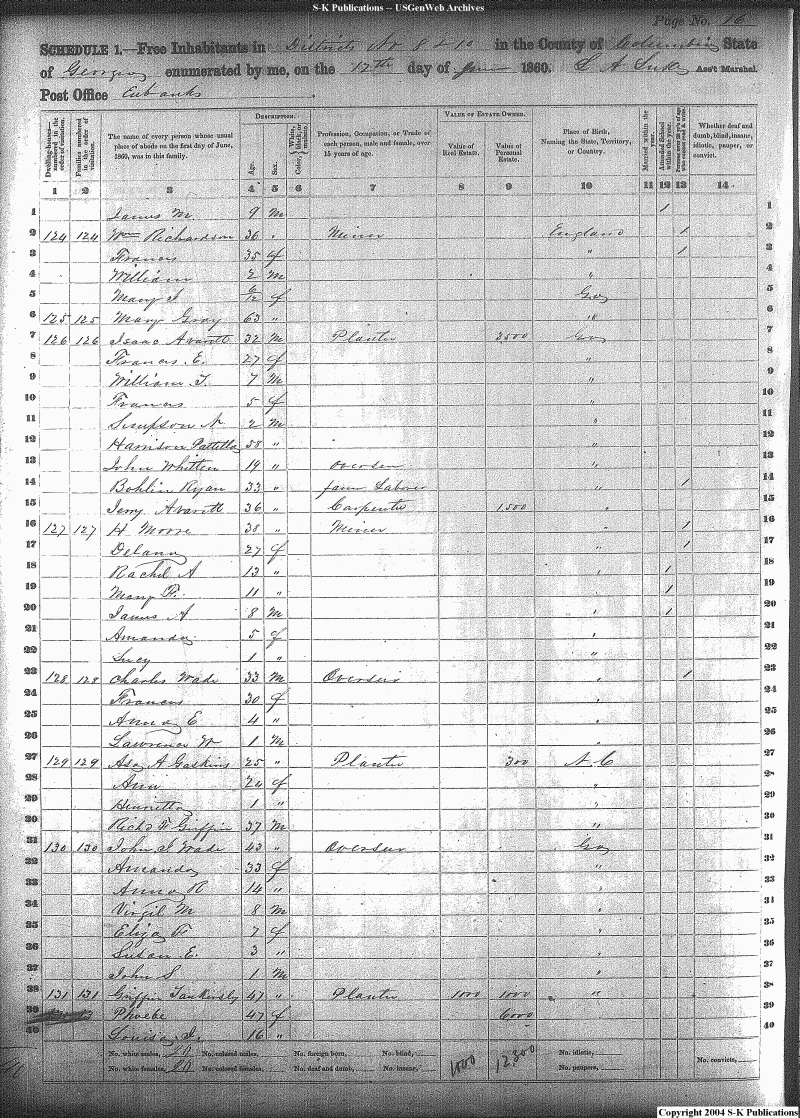 S-K Publications -- USGenWeb Archives
Page No. 16
SCHEDULE 1.—Free Inhabitants in Districts No 8 & 10 in the County of Columbia State
of Georgia enumerated by me, on the 12th day of June 1860. Ass't Marshal.
Post Office Eubanks
DESCRIPTION. VALUE OF ESTATE OWNED.
Dwelling-houses—numbered in the order of visitation. Families numbered in the order of visitation. The name of every person whose usual place of abode on the first day of June, 1860, was in this family. Age. Sex. White, Color, black, or mulatto. Profession, Occupation, or Trade of each person, male and female, over 15 years of age. Value of Real Estate. Value of Personal Estate. Place of Birth, Naming the State, Territory, or Country. Married within the year. Attended School within the year. Persons over 20 y'rs of age who cannot read & write. Whether deaf and dumb, blind, insane, idiotic, pauper, or convict.
1 2 3 4 5 6 7 8 9 10 11 12 13 14
1 James M 9 M / 1
2 124 124 Wm Richardson 36 Miner England / 2
3 Frances 35 f " / 3
4 William 2 M " 4
5 Mary J 6/12 f Geo 5
6 125 125 Mary Gray 63 " " 6
7 126 126 Isaac Avarett 32 M Planter 2500 Geo 7
8 Frances E. 27 f " 8
9 William T. 7 M " 9
10 Frances 5 f " 10
11 Simpson N 2 M " 11
12 Harrison 58 " " 12
13 John Whitten 19 " Overseer " 13
14 Bohlin Ryan 33 " farm Laborer " / 14
15 Jerry Avarett 36 " Carpenter 1500 " 15
16 127 127 H Moore 38 " Miner " / 16
17 Delana 27 f " / 17
18 Rachel A 13 " " / 18
19 Mary F. 11 " " / 19
20 James A 8 M " / 20
21 Amanda 5 f " 21
22 Lucy 1 " " 22
23 128 128 Charles Wade 33 M Overseer " / 23
24 Frances 30 f " 24
25 Anna E 4 " " 25
26 Lawrence W 1 M " 26
27 129 129 Asa A Gaskins 25 " Planter 300 N. C 27
28 Ann 24 f " 28
29 Henrietta 1 " " 29
30 Richd F Griffin 37 M " 30
31 130 130 John S Wade 43 " Overseer Geo 31
32 Amanda 33 f " 32
33 Anna R 14 " " 33
34 Virgil M 8 M " 34
35 Eliza F. 7 f " 35
36 Susan E. 3 " " 36
37 John S 1 M " 37
38 131 131 Griffin Tankersly 47 " Planter 1000 1000 " 38
39 Phoebe 47 f 6000 39
40 Louisa J. 16 " 40
No. white males, 20 No. colored males, No. foreign born, No. blind, 1000 12,300 No. idiotic, No. convicts,
No. white females, 20 No. colored females, No. deaf and dumb, No. insane, No. paupers,
Copyright 2004 S-K Publications